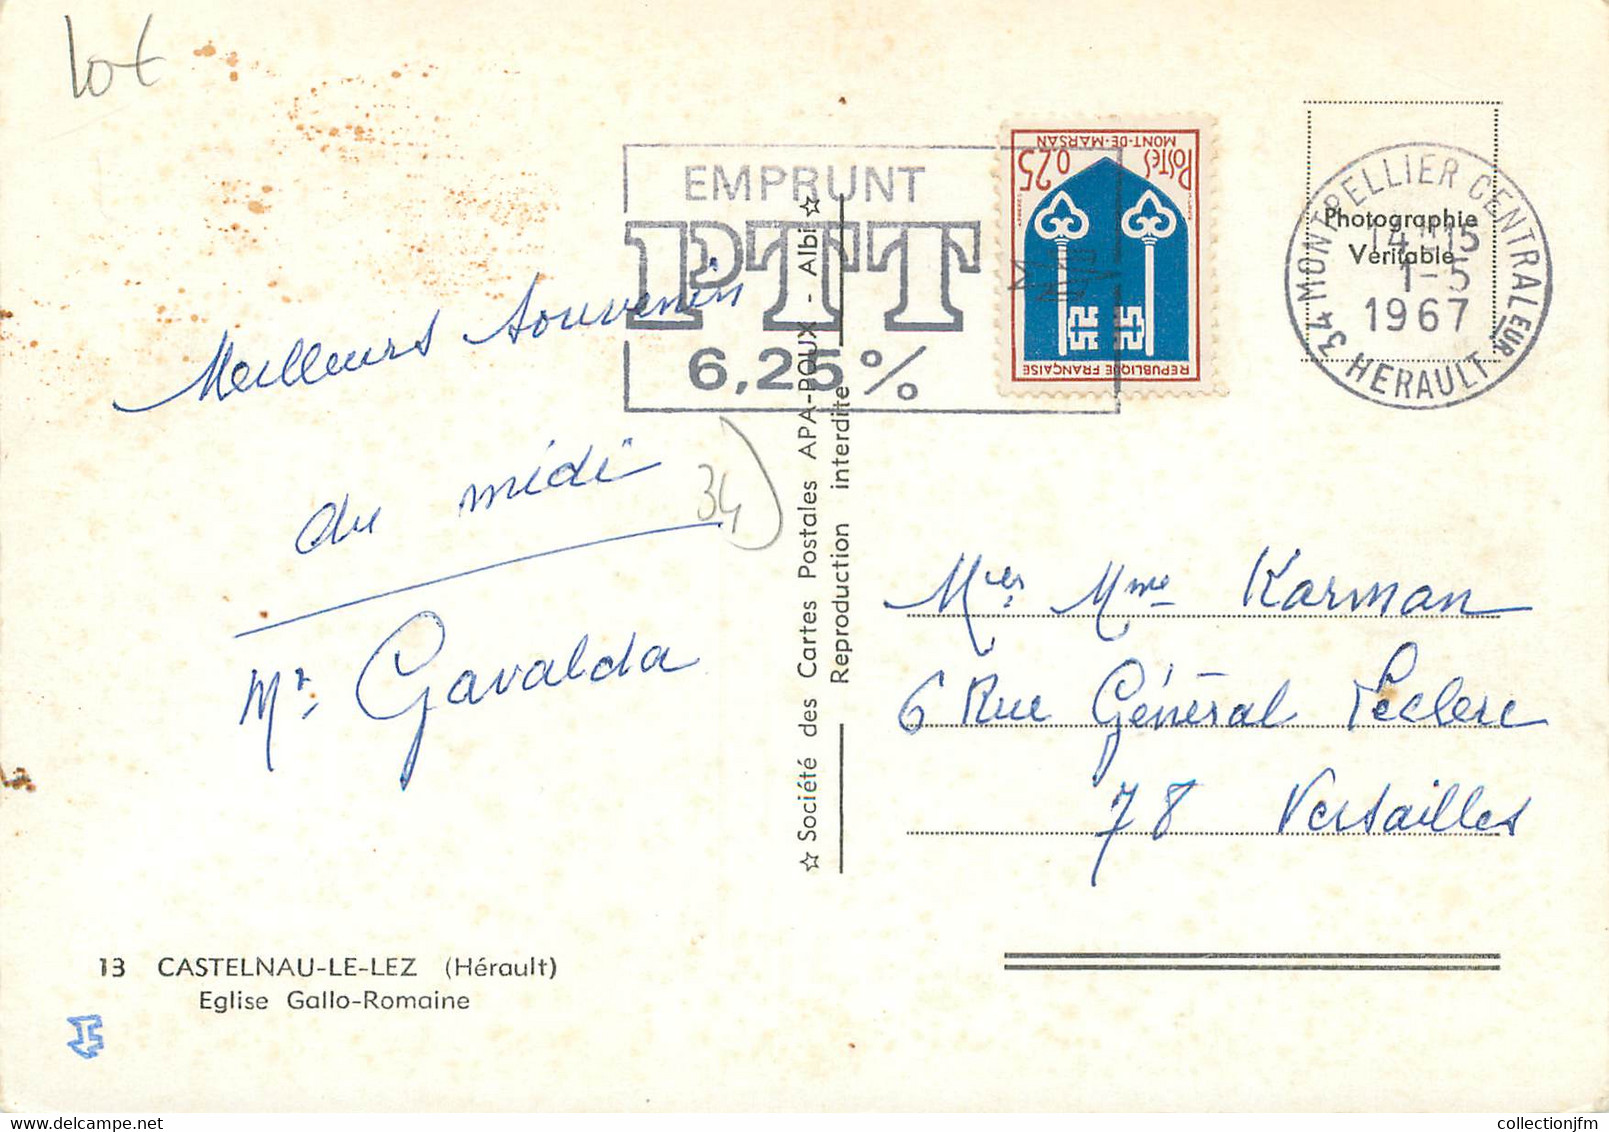 lot
EMPRUNT
PTT
6,25 %
POSTES 0,25
MONT-DE-MARSAN
REPUBLIQUE FRANÇAISE
34 MONTPELLIER CENTRALEUR
HERAULT
1-5
1967
Photographie
Véritable
Meilleurs souvenirs
du midi
34
Mr Gavalda
☆ Société des Cartes Postales APA-POUX - Albi ☆
Reproduction interdite
Mr et Mme Karman
6 Rue Général Leclerc
78 Versailles
13 CASTELNAU-LE-LEZ (Hérault)
Eglise Gallo-Romaine
collectionjfm